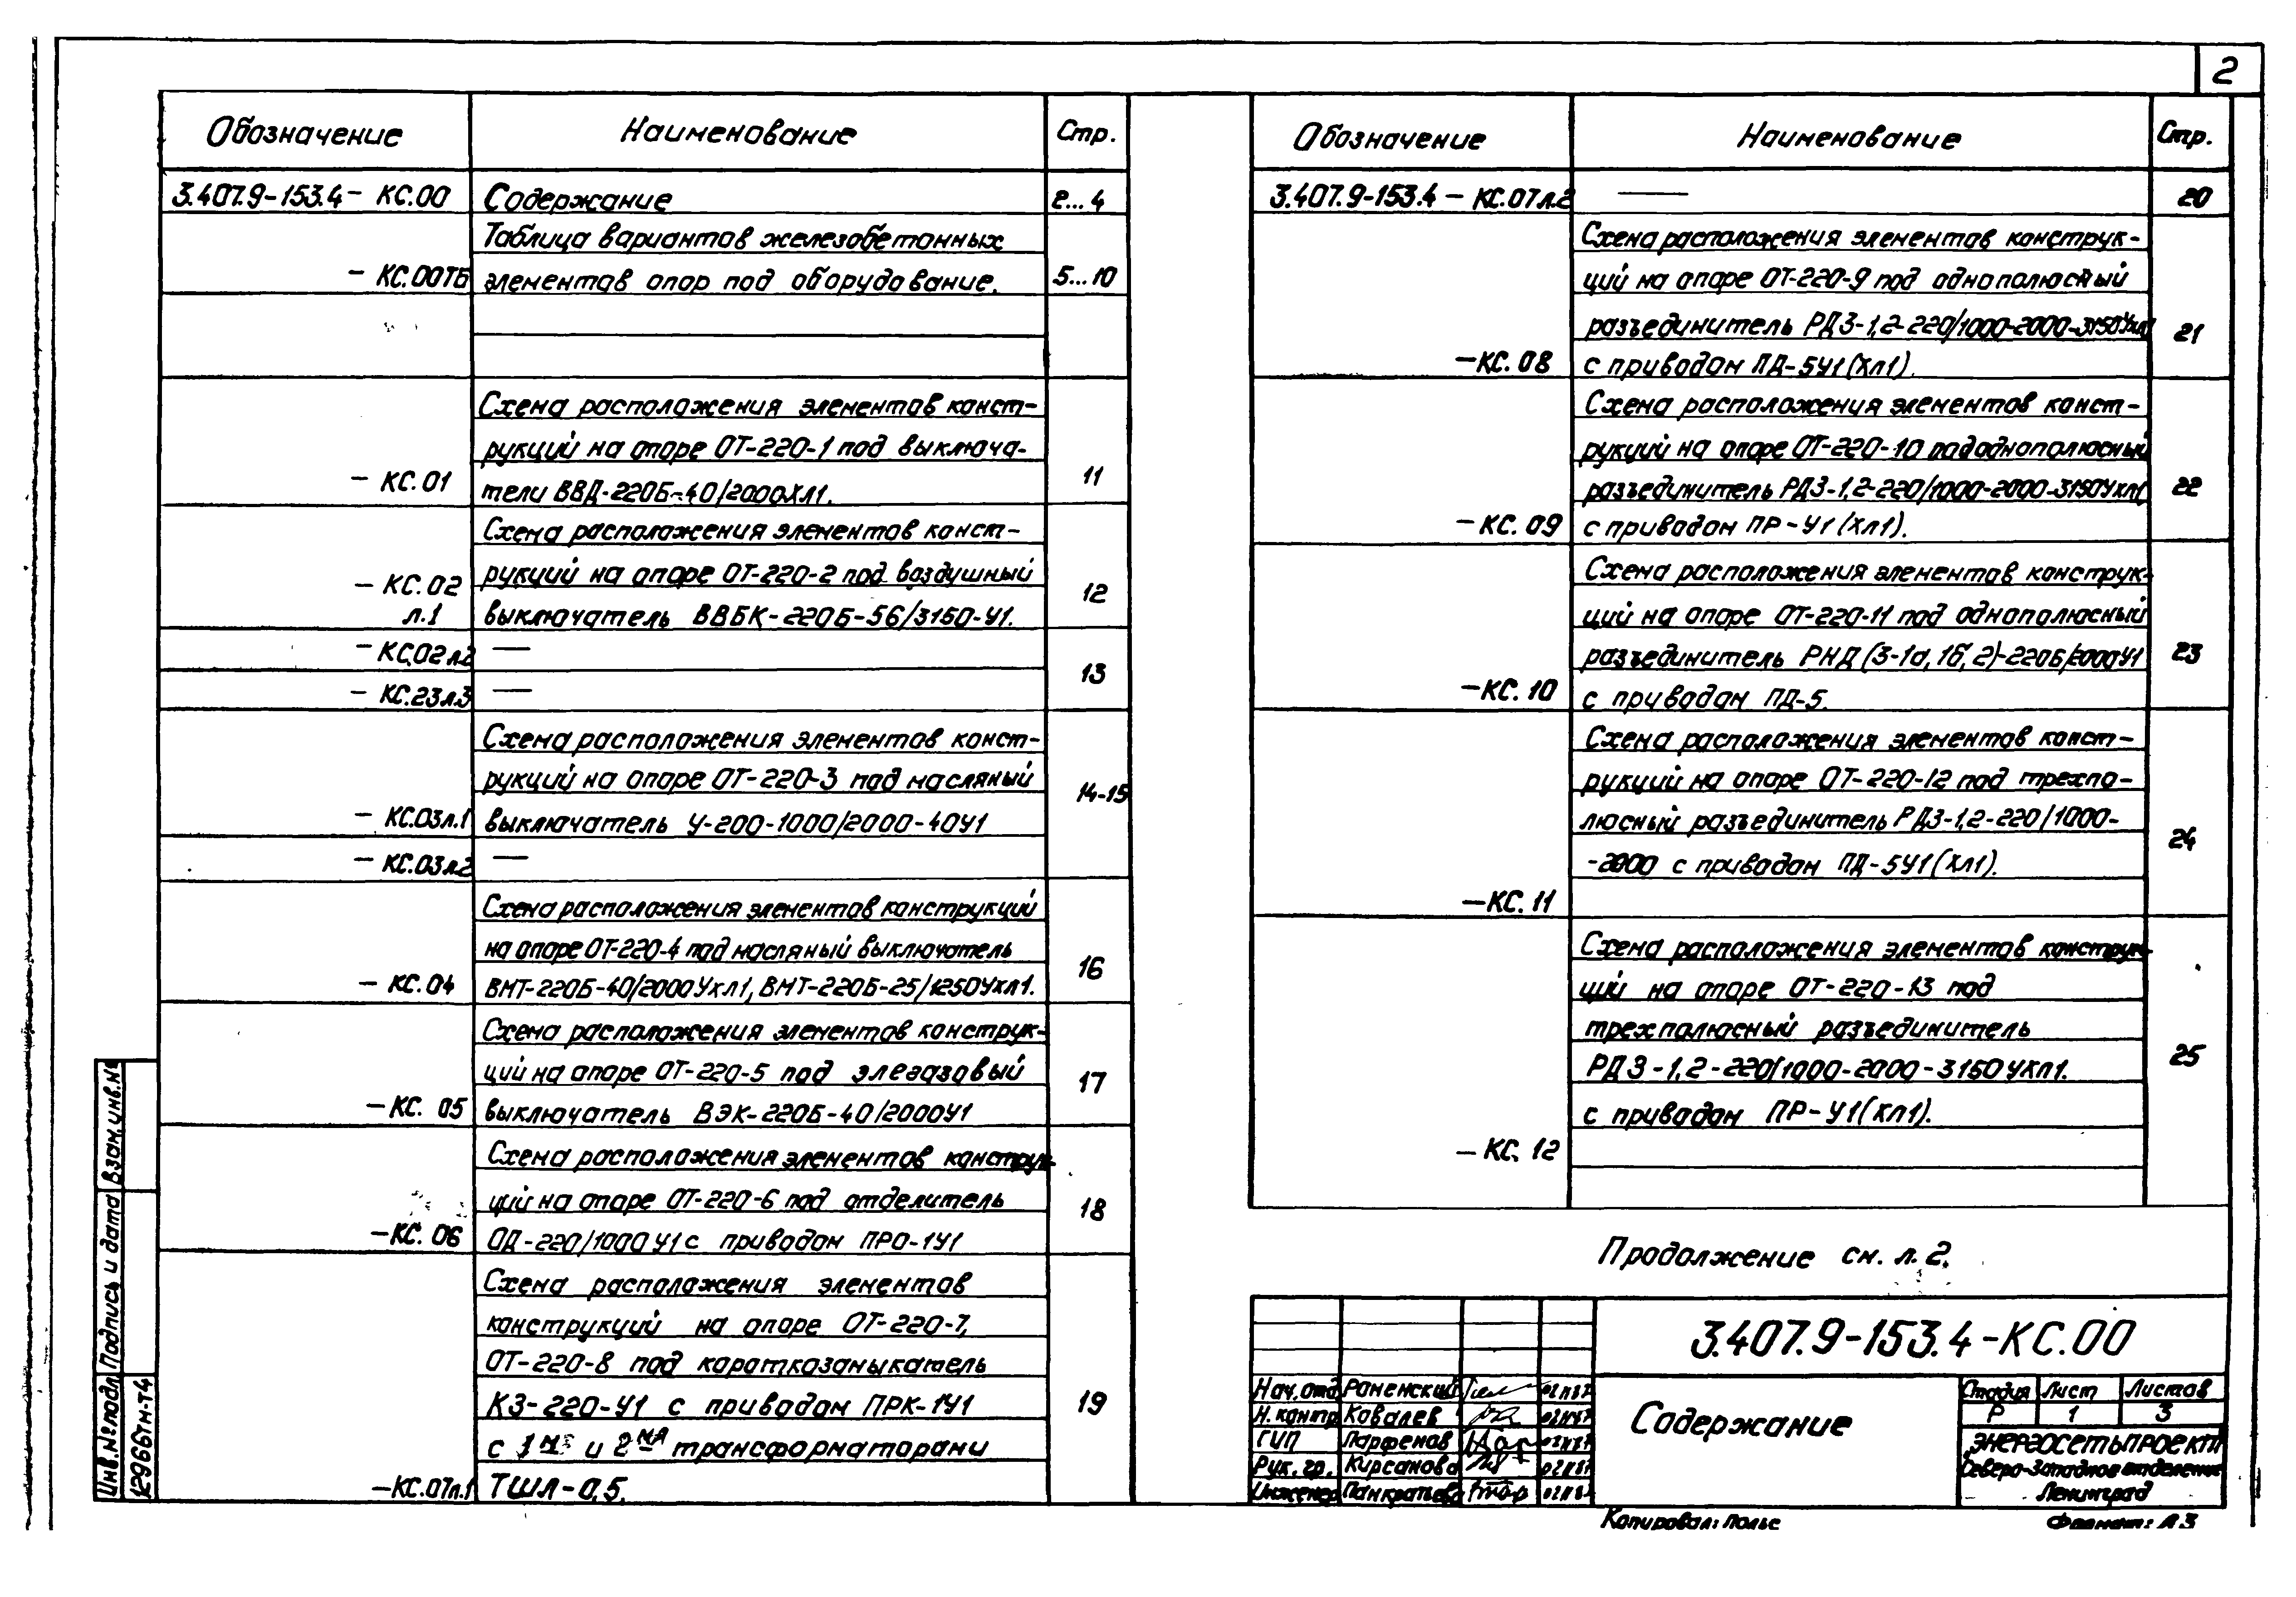 2
Обозначение Наименование Стр.
3.407.9-153.4- КС.00 Содержание 2...4
Таблица вариантов железобетонных
- КС.00ТБ элементов опор под оборудование. 5...10
Схема расположения элементов конст-
рукций на опоре ОТ-220-1 под выключа-
- КС.01 тели ВВД-220Б-40/2000ХЛ1. 11
Схема расположения элементов конст-
- КС.02 рукций на опоре ОТ-220-2 под воздушный 12
л.1 выключатель ВВБК-220Б-56/3150-У1.
- КС.02л.2 —
13
- КС.23л.3 —
Схема расположения элементов конст-
рукций на опоре ОТ-220-3 под масляный 14-15
- КС.03л.1 выключатель У-200-1000/2000-40У1
- КС.03л.2 —
Схема расположения элементов конструкций
на опоре ОТ-220-4 под масляный выключатель
- КС.04 ВМТ-220Б-40/2000УХЛ1, ВМТ-220Б-25/1250УХЛ1. 16
Схема расположения элементов конструк-
ций на опоре ОТ-220-5 под элегазовый 17
- КС. 05 выключатель ВЭК-220Б-40/2000У1
Схема расположения элементов конструк-
ций на опоре ОТ-220-6 под отделитель 18
- КС. 06 ОД-220/1000 У1 с приводом ПРО-1У1
Схема расположения элементов
конструкций на опоре ОТ-220-7,
ОТ-220-8 под короткозамыкатель
КЗ-220-У1 с приводом ПРК-1У1 19
с 1 и 2мя трансформаторами
- КС.07л.1 ТШЛ-0,5.
Обозначение Наименование Стр.
3.407.9-153.4 - КС.07л.2 — 20
Схема расположения элементов конструк-
ций на опоре ОТ-220-9 под однополюсный
разъединитель РДЗ-1,2-220/1000-2000-3150УХЛ1 21
- КС. 08 с приводом ПД-5У1(ХЛ1).
Схема расположения элементов конст-
рукций на опоре ОТ-220-10 под однополюсный
разъединитель РДЗ-1,2-220/1000-2000-3150УХЛ1 22
- КС. 09 с приводом ПР-У1(ХЛ1).
Схема расположения элементов конструк-
ций на опоре ОТ-220-11 под однополюсный
разъединитель РНД(З-1а, 1б, 2)-220Б/2000У1 23
- КС. 10 с приводом ПД-5.
Схема расположения элементов конст-
рукций на опоре ОТ-220-12 под трехпо-
люсный разъединитель РДЗ-1,2-220/1000- 24
-2000 с приводом ПД-5У1(ХЛ1).
- КС. 11
Схема расположения элементов конструк-
ций на опоре ОТ-220-13 под
трехполюсный разъединитель
РДЗ-1,2-220/1000-2000-3150 УХЛ1. 25
с приводом ПР-У1(ХЛ1).
- КС. 12
Продолжение см. л.2.
3.407.9-153.4-КС.00
Содержание
Стадия Лист Листов
Р 1 3
ЭНЕРГОСЕТЬПРОЕКТ
Северо-Западное отделение
Ленинград
Нач.отд Роменский
Н.контр Ковалев
ГИП Парфенов
Рук.гр. Кирсанова
Инженер Панкратьева
Копировал: Польс Формат: А3
Взам.инв.№
Подпись и дата
Инв.№подл
12966тм-т4